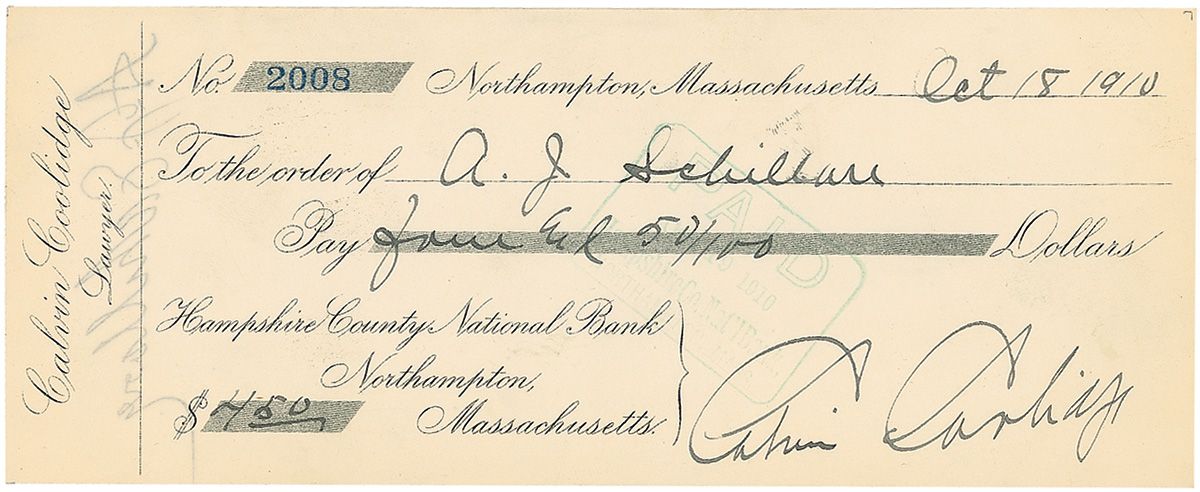 Calvin Coolidge
Lawyer.
No. 2008 Northampton, Massachusetts Oct 18 1910
To the order of A. J. Schillare
Pay Four & 50/100 Dollars
PAID
1910
Hampshire County National Bank
Northampton,
Massachusetts.
$ 4 50
Calvin Coolidge